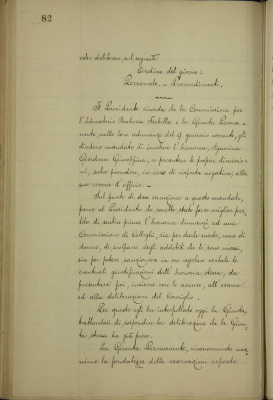 82
vole deliberare sul seguente
Ordine del giorno:
Personale. - Provvedimenti.
Il Presidente ricorda che la Commissione per
l'Educandato Isabella e la Giunta Perma-
nente, nelle loro adunanze del 9 gennaio corrente, gli
diedero mandato di invitare l'economa, Signorina
Giordano Giuseppina, a presentare le proprie dimissio-
ni, salvo procedere, in caso di risposta negativa, alla
sua revoca d'ufficio. -
Sul punto di dare esecuzione a questo mandato,
parve al Presidente che sarebbe stato forse miglior par-
tito di sentire prima l'economa dinnanzi ad una
Commissione di Colleghi, sia per darle modo, come di
dovere, di scolparsi degli addebiti che le sono mossi,
sia per poter consegnare in un regolare verbale le
eventuali giustificazioni dell'economa stessa, da
presentarsi poi, insieme con le accuse, all'esame
ed alla deliberazione del Consiglio.
Per questo egli ha interpellato oggi la Giunta,
trattandosi di sospendere la deliberazione che la Giun-
ta stessa ha già preso.
La Giunta Permanente, riconoscendo una-
nime la fondatezza delle osservazioni esposte